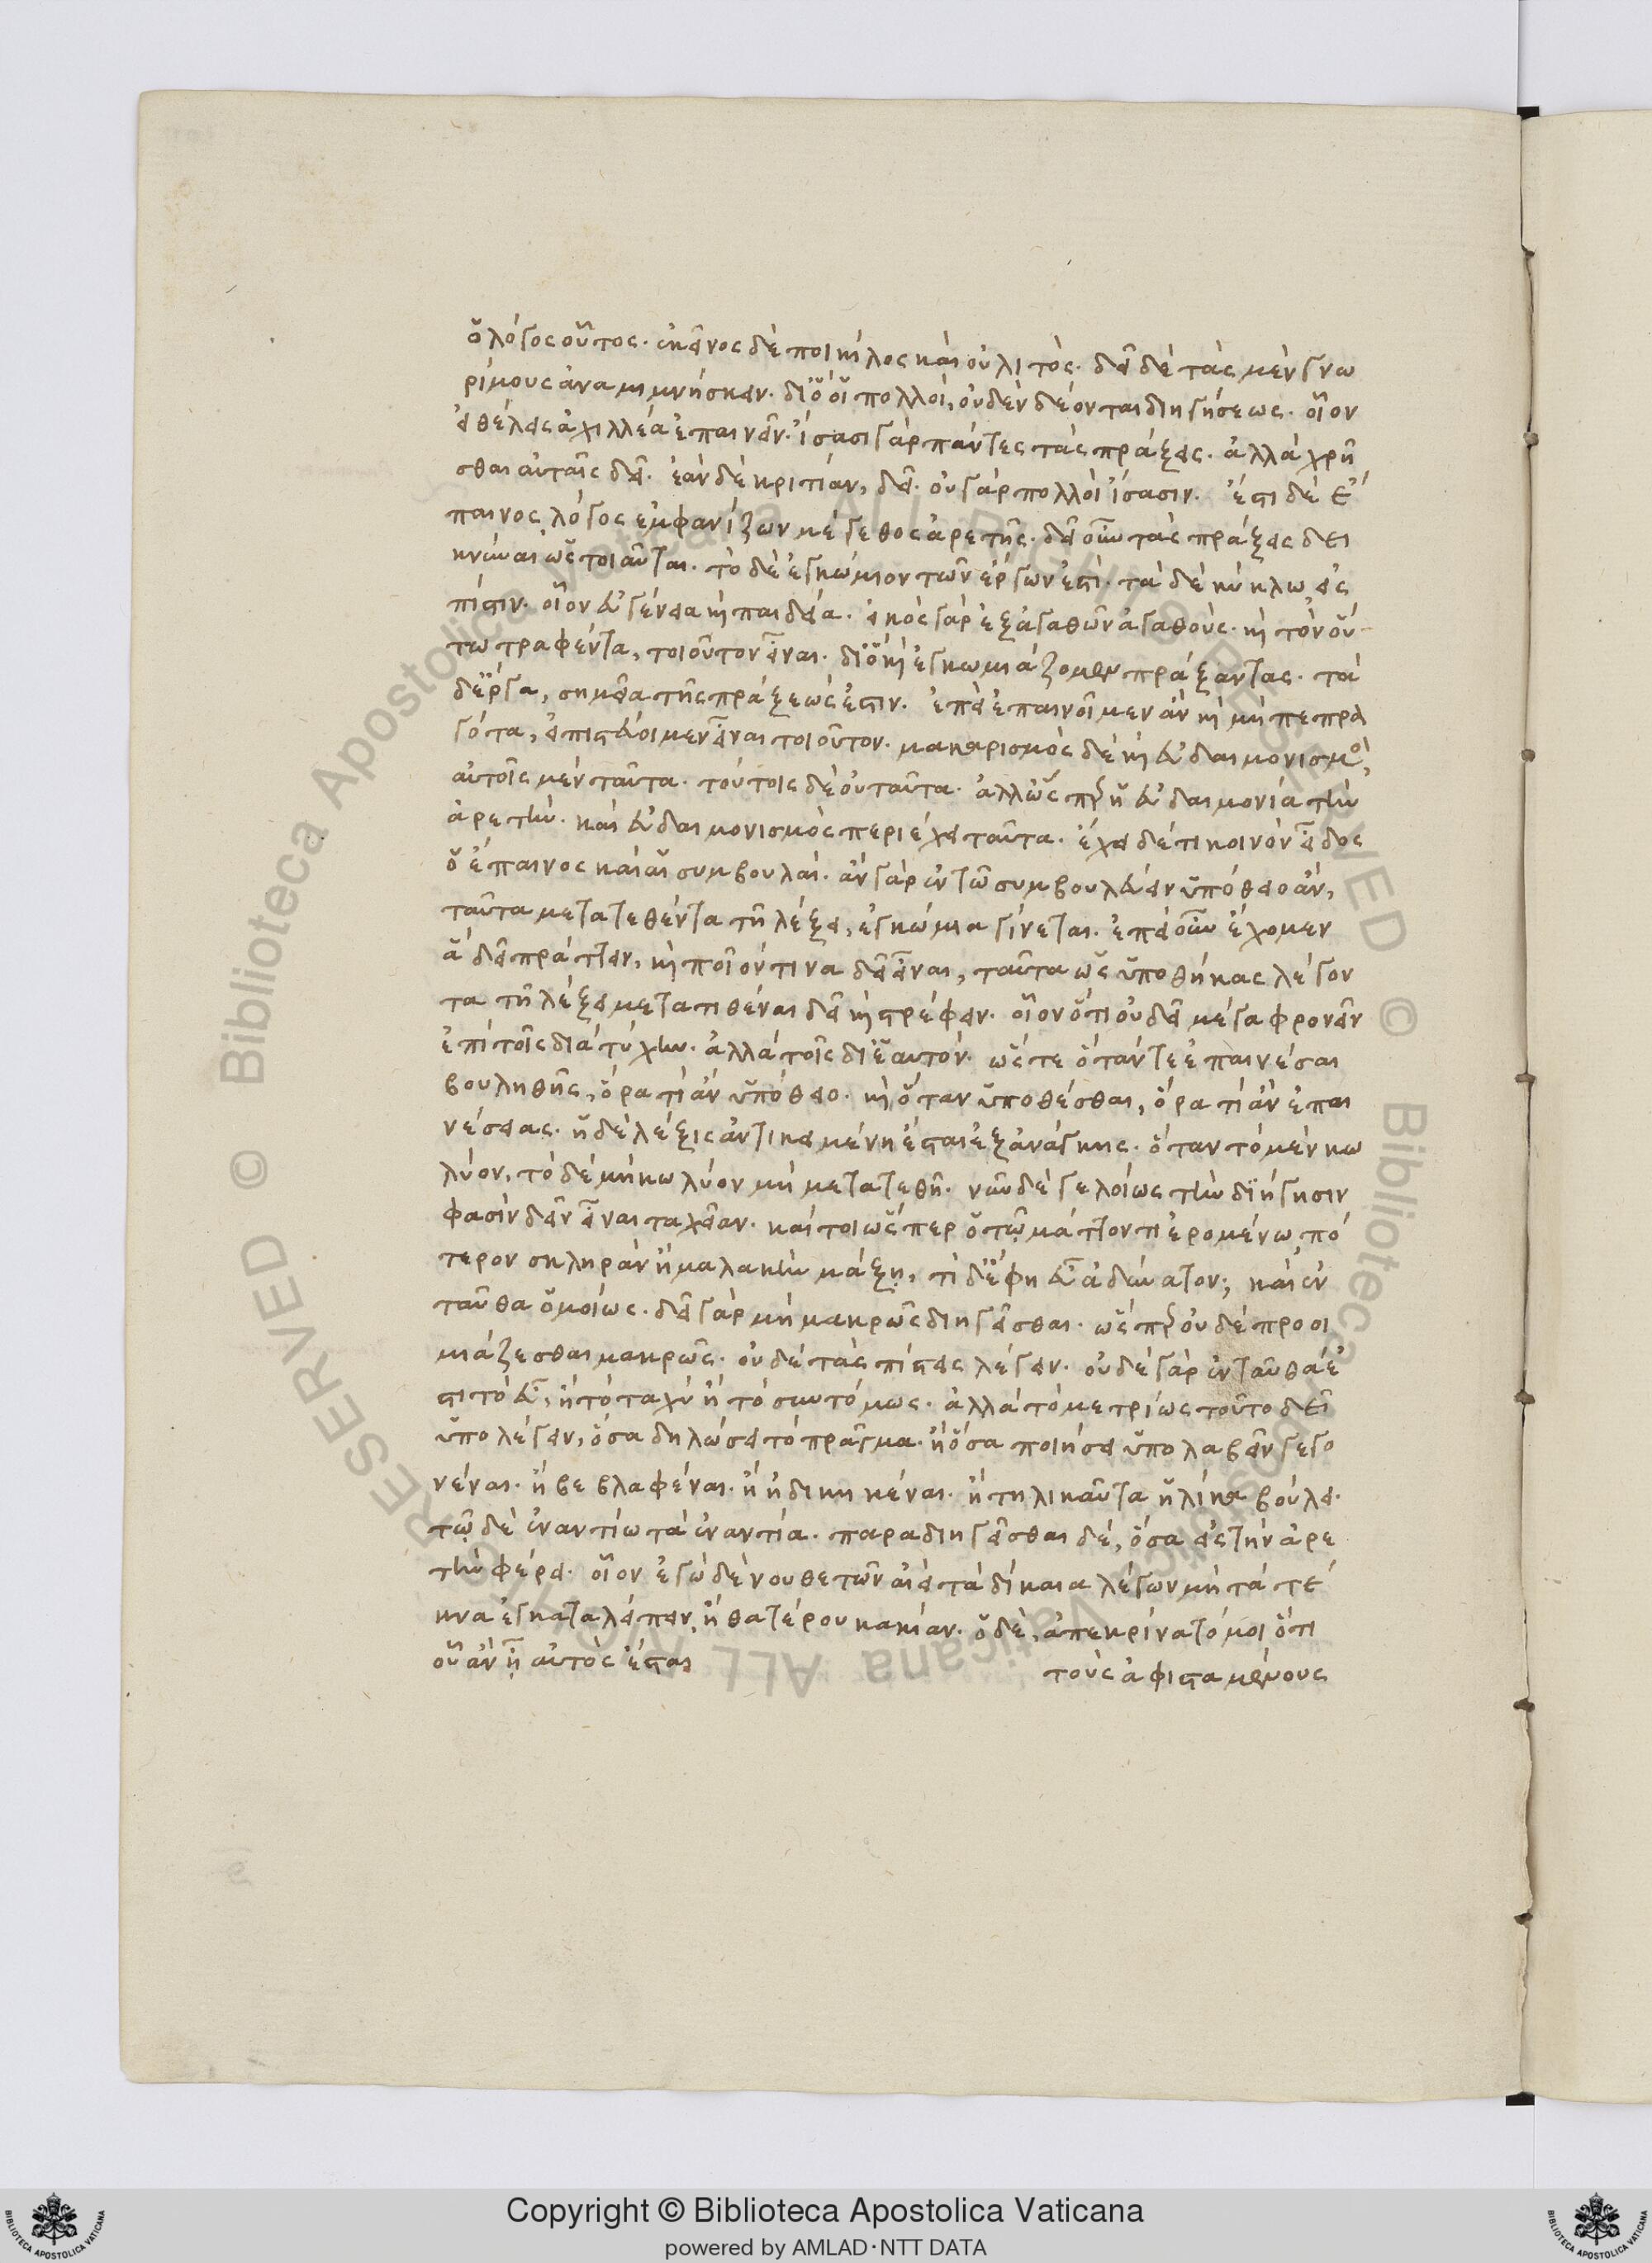 ὁ λόγος οὗτος. ἐκεῖνος δὲ ποικίλος καὶ οὐ λιτός. δεῖ δὲ τὰς μὲν γνω
ρίμους ἀναμιμνήσκειν. διὸ οἱ πολλοὶ, οὐδὲν δέονται διηγήσεως. οἷον
εἰ θέλεις ἀχιλλέα ἐπαινεῖν. ἴσασι γὰρ πάντες τὰς πράξεις. ἀλλὰ χρῆ
σθαι αὐταῖς δεῖ. ἐὰν δὲ κριτίαν, δεῖ. οὐ γὰρ πολλοὶ ἴσασιν. ἔστι δὲ ἔ
παινος λόγος ἐμφανίζων μέγεθος ἀρετῆς. δεῖ οὖν τὰς πράξεις δει
κνύναι ὡς τοιαῦται. τὸ δὲ ἐγκώμιον τῶν ἔργων ἐστί. τὰ δὲ κύκλω, εἰς
πίστιν. οἷον εὐγένεια καὶ παιδεία. εἰκὸς γὰρ ἐξ ἀγαθῶν ἀγαθούς. καὶ τὸν οὕ
τω τραφέντα, τοιοῦτον εἶναι. διὸ καὶ ἐγκωμιάζομεν πράξαντας. τὰ
δ' ἔργα, σημεῖα τῆς πράξεώς ἐστιν. ἐπεὶ ἐπαινοῖμεν ἂν καὶ μὴ πεπρα
γότα, εἰ πιστεύοιμεν εἶναι τοιοῦτον. μακαρισμὸς δὲ καὶ εὐδαιμονισμὸς,
αὐτοῖς μὲν ταῦτα. τούτοις δὲ οὐ ταῦτα. ἀλλ' ὥσπερ ἡ εὐδαιμονία τὴν
ἀρετὴν. καὶ εὐδαιμονισμὸς περιέχει ταῦτα. ἔχει δέ τι κοινὸν εἶδος
ὁ ἔπαινος καὶ αἱ συμβουλαί. ἃν γὰρ ἐν τῶ συμβουλεύειν ὑπόθειο ἂν,
ταῦτα μετατεθέντα τῆ λέξει, ἐγκώμια γίνεται. ἐπεὶ οὖν ἔχομεν
ἃ δεῖ πράττειν, καὶ ποῖον τινα δεῖ εἶναι, ταῦτα ὡς ὑποθήκας λέγον
τα τῆ λέξει μετατιθέναι δεῖ καὶ στρέφειν. οἷον ὅτι οὐ δεῖ μέγα φρονεῖν
ἐπὶ τοῖς διὰ τύχην. ἀλλὰ τοῖς δι' ἑαυτόν. ὥστε ὅταν τε ἐπαινέσαι
βουληθῆς, ὅρα τί ἂν ὑπόθειο. καὶ ὅταν ὑποθέσθαι, ὅρα τί ἂν ἐπαι
νέσειας. ἡ δὲ λέξις ἀντικειμένη ἔσται ἐξ ἀνάγκης. ὅταν τὸ μὲν κω
λύον, τὸ δὲ μὴ κωλύον μὴ μετατεθῆ. νῦν δὲ γελοίως τὴν διήγησιν
φασὶν δεῖν εἶναι ταχεῖαν. καίτοι ὥσπερ ὁ τῶ μάττοντι ἐρομένω, πό
τερον σκληρὰν ἢ μαλακὴν μάξη, τί δ' ἔφη εὖ ἀδύνατον; καὶ ἐν
ταῦθα ὁμοίως. δεῖ γὰρ μὴ μακρῶς διηγεῖσθαι. ὥσπερ οὐδὲ προοι
μιάζεσθαι μακρῶς. οὐδὲ τὰς πίστεις λέγειν. οὐδὲ γὰρ ἐνταῦθα ἐ
στὶ τὸ εὖ, ἢ τὸ ταχὺ ἢ τὸ συντόμως. ἀλλὰ τὸ μετρίως τοῦτο δεῖ
ὑπολέγειν, ὅσα δηλώσει τὸ πρᾶγμα. ἢ ὅσα ποιήσει ὑπολαβεῖν γεγο
νέναι. ἢ βεβλαφέναι. ἢ ἠδικηκέναι. ἢ τηλικαῦτα ἡλίκα βούλει.
τῶ δὲ ἐναντίω τὰ ἐναντία. παραδιηγεῖσθαι δὲ, ὅσα εἰς τὴν ἀρε
τὴν φέρει. οἷον ἐγὼ δὲ νουθετῶν αἰεὶ τὰ δίκαια λέγων μὴ τὰ τέ
κνα ἐγκαταλείπειν, ἢ θατέρου κακίαν. ὁ δὲ, ἀπεκρίνατό μοι ὅτι
οὗ ἂν ἦ αὐτὸς ἔσται τοὺς ἀφισταμένους